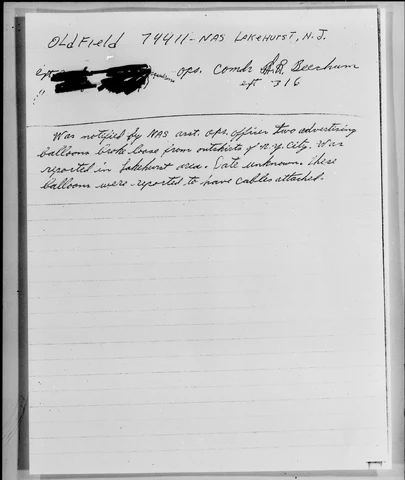 Oldfield 74411 - NAS Lakehurst, N.J.
ext ops. Comdr A.R. Beecham
" ext 316
Was notified by NAS asst. ops. officer two advertising
balloons broke loose from outskirts of N.Y. City. Was
reported in Lakehurst area. Date unknown. These
balloons were reported to have cables attached.